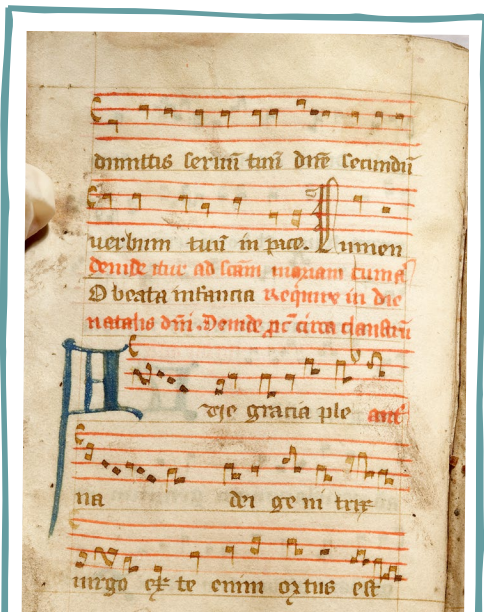 dimittis servū tuū dn̄e secundū
verbum tuū in pace. Lumen
deinde itur ad scām mariam cum añ
O beata infancia Require in die
natalis dn̄i. Deinde pr̄ circa claustrū
Ave gracia ple ant̄
na dei ge ni trix
virgo ex te enim ortus est